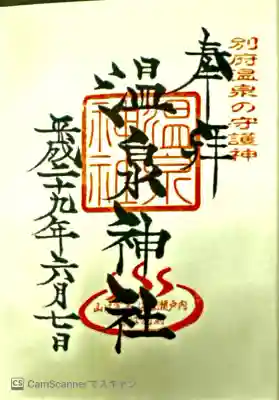 別府温泉の守護神
奉拝
温泉神社
温泉神社
平成二十九年六月七日
CS CamScannerでスキャン